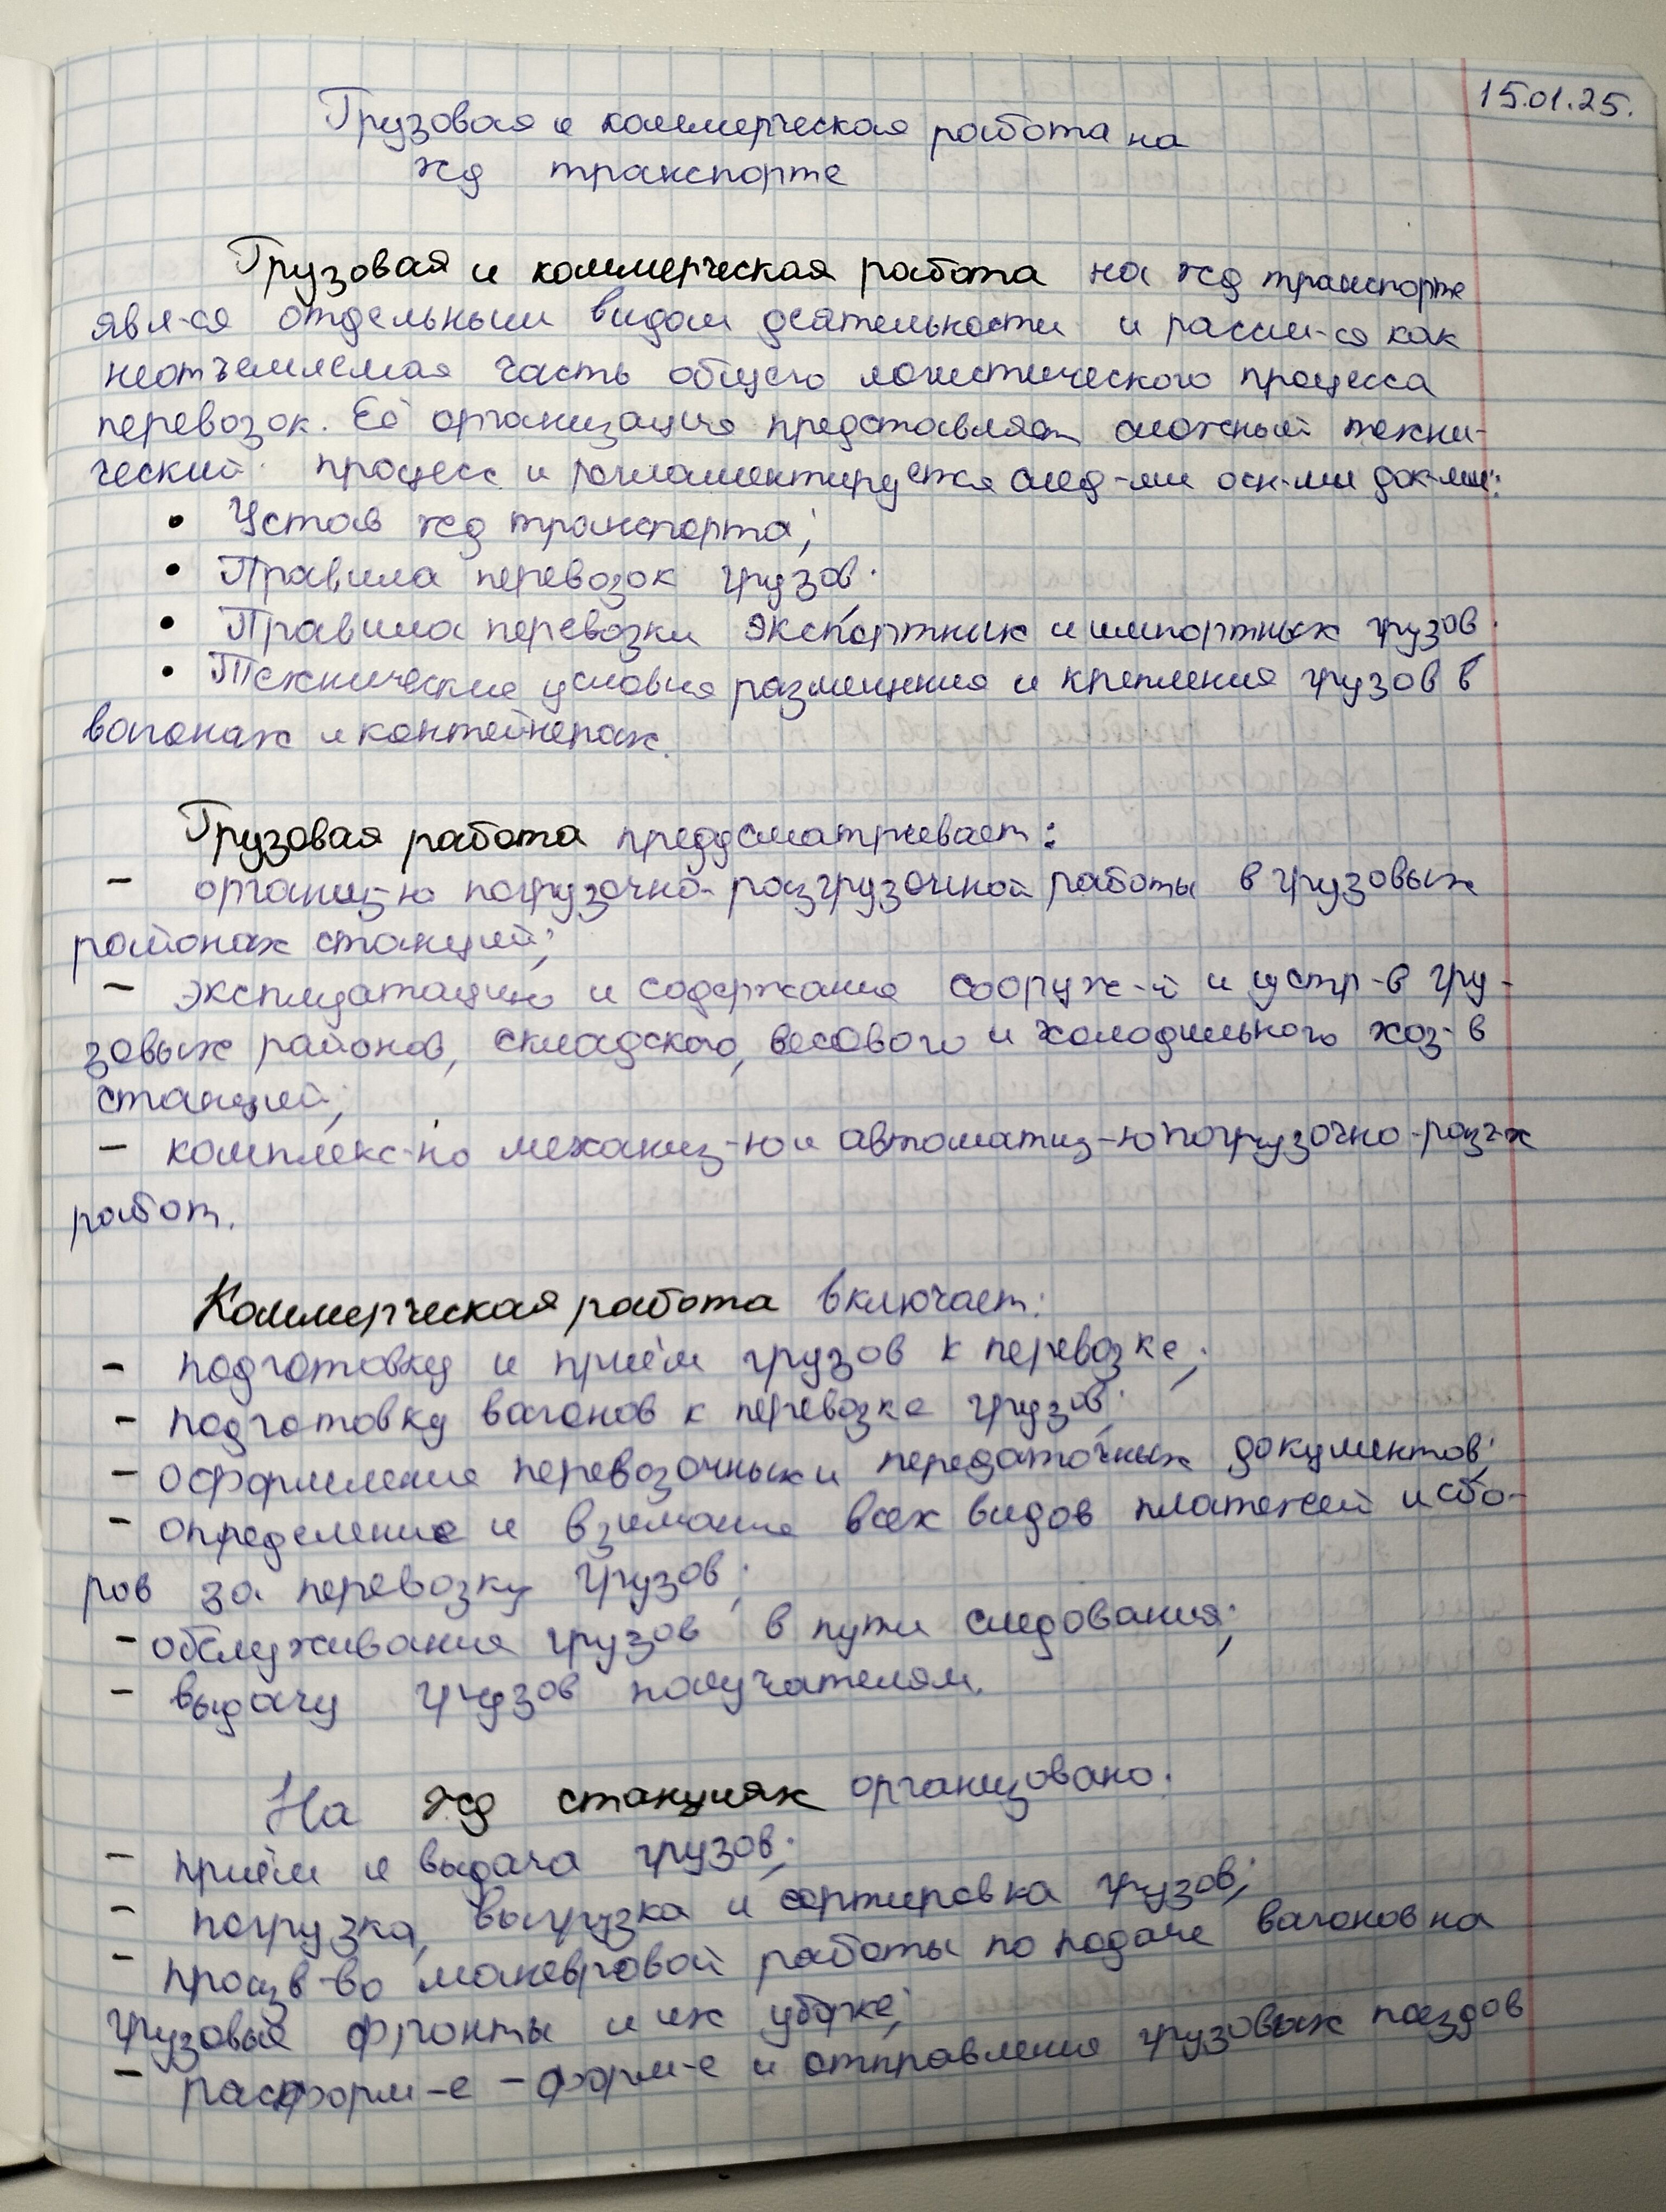 15.01.25.
Грузовая и коммерческая работа на
жд транспорте
Грузовая и коммерческая работа на жд транспорте
явл-ся отдельным видом деятельности и рассм-ся как
неотъемлемая часть общего логистического процесса
перевозок. Её организация представляет сложный техни-
ческий процесс и регламентируется след-ми осн-ми док-ми:
• Устав жд транспорта;
• Правила перевозок грузов.
• Правила перевозки экспортных и импортных грузов.
• Технические условия размещения и крепления грузов в
вагонах и контейнерах.
Грузовая работа предусматривает:
- организ-ю погрузочно-разгрузочной работы в грузовых
районах станций;
- эксплуатацию и содержание сооруж-й и устр-в гру-
зовых районов, складского, весового и холодильного хоз-в
станций;
- комплекс-ю механиз-ю и автоматиз-ю погрузочно-разг-х
работ.
Коммерческая работа включает:
- подготовку и приём грузов к перевозке;
- подготовку вагонов к перевозке грузов;
- оформление перевозочных и передаточных документов;
- определение и взимание всех видов платежей и сбо-
ров за перевозку грузов;
- обслуживание грузов в пути следования;
- выдачу грузов получателям.
На жд станциях организовано:
- приём и выдача грузов;
- погрузка, выгрузка и сортировка грузов;
- произв-во маневровой работы по подаче вагонов на
грузовые фронты и их уборке;
- расформ-е - форм-е и отправление грузовых поездов